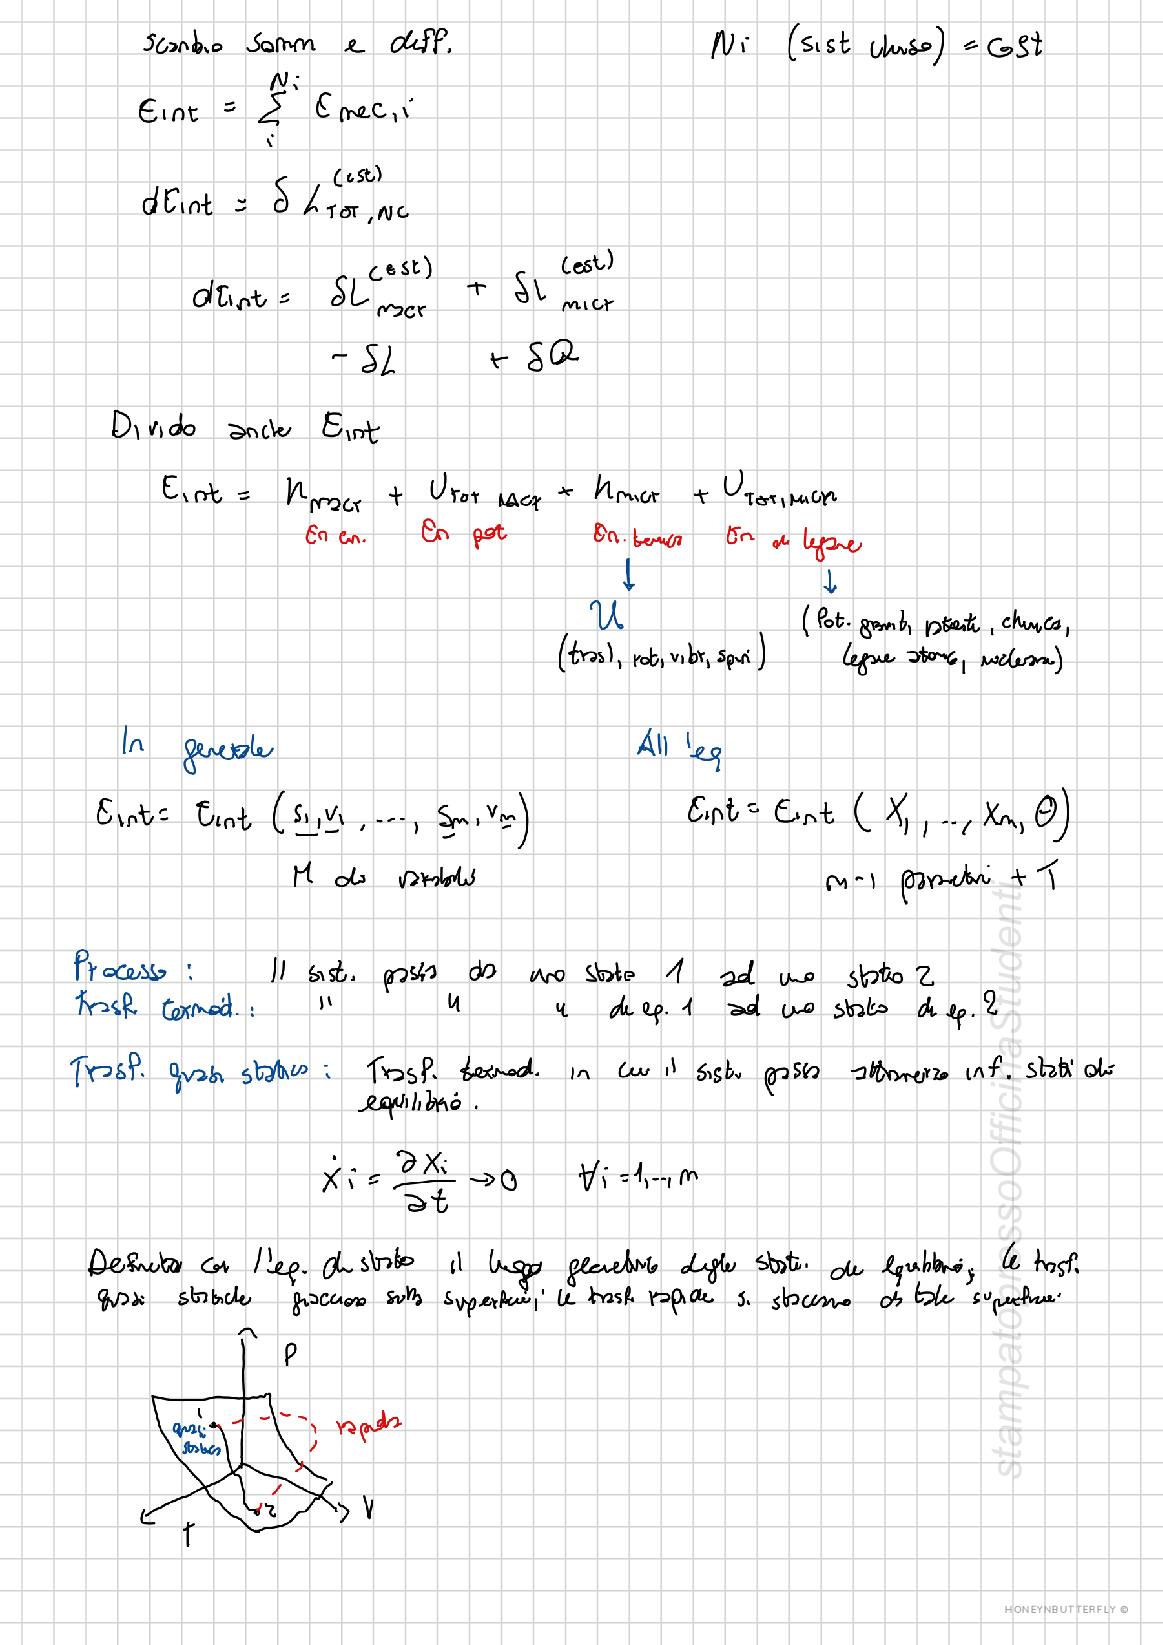 scambio somm e diff. Ni (sist chiuso) = cost
Eint = Σ_i^{Ni} Emec,i
dEint = δL_{TOT,NC}^{(est)}
dEint = δL_{macr}^{(est)} + δL_{micr}^{(est)}
- δL + δQ
Divido anche Eint
Eint = K_{macr} + U_{TOT MACR} + K_{micr} + U_{TOT,MICR}
En cin. En pot En. termica En di legame
↓ ↓
U (Pot. gravit, elast, chimica,
(trasl, rot, vibr, spin) legame atomic, nucleare)
In generale All'eq
Eint = Eint (s1, v1, ..., sm, vm) Eint = Eint (X1, .., Xm, Θ)
M di variabili m-1 parametri + T
Processo: Il sist. passa da uno stato 1 ad uno stato 2
Trasf. termod.: " " " di eq. 1 ad uno stato di eq. 2
Trasf. quasi statica: Trasf. termod. in cui il sist. passa attraverso inf. stati di
equilibrio.
ẋi = ∂Xi/∂t → 0 ∀i = 1,..,m
Definito con l'eq. di stato il luogo geometrico degli stati di equilibrio, le trasf.
quasi statiche giacciono sulla superficie, le trasf. rapide si staccano da tale superficie.
P
1
quasi
statica
rapida
2
V
T
stampatopressoOfficinaStudenti
HONEYNBUTTERFLY ©